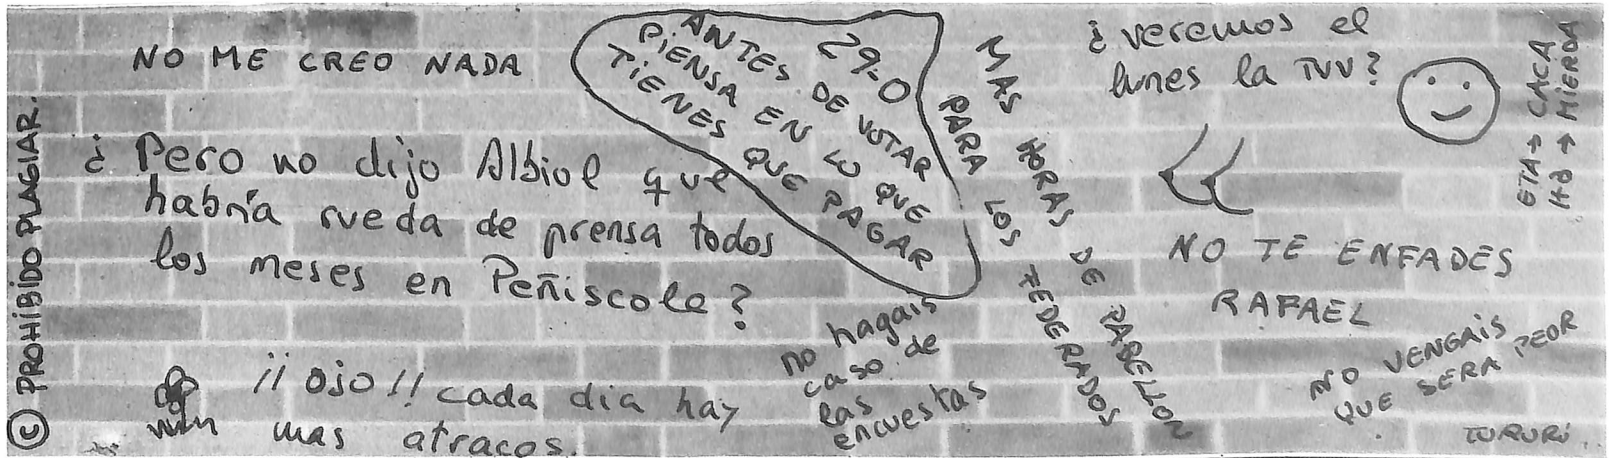 © PROHIBIDO PLAGIAR.
NO ME CREO NADA
¿Pero no dijo Albiol que
habría rueda de prensa todos
los meses en Peñiscola?
¡¡OJO!! cada dia hay
mas atracos.
29-O
ANTES DE VOTAR
PIENSA EN LO QUE
TIENES QUE PAGAR
no hagais
caso de
las
encuestas
MAS HORAS DE PABELLON
PARA LOS FEDERADOS
¿veremos el
lunes la TVV?
NO TE ENFADES
RAFAEL
NO VENGAIS
QUE SERA PEOR
TURURÚ..
ETA → CACA
→ MIERDA